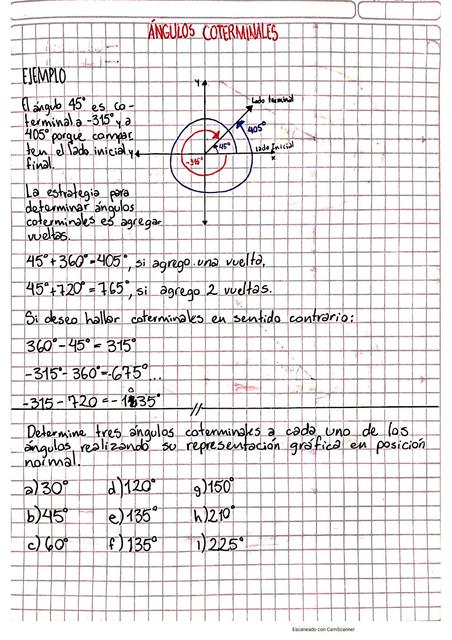 ÁNGULOS COTERMINALES
EJEMPLO
El ángulo 45° es co-
terminal a -315° y a
405° porque compar
ten el lado inicial y
final.
Y
Lado terminal
405°
45°
-315°
lado Inicial
x
La estrategia para
determinar ángulos
coterminales es agregar
vueltas.
45°+360°=405°, si agrego una vuelta,
45°+720°=765°, si agrego 2 vueltas.
Si deseo hallar coterminales en sentido contrario:
360°-45°= 315°
-315°-360°=-675°...
-315-720=-1035°
Determine tres ángulos coterminales a cada uno de los
ángulos realizando su representación gráfica en posición
normal.
a) 30° d) 120° g) 150°
b) 45° e) 135° h) 210°
c) 60° f) 135° i) 225°
Escaneado con CamScanner